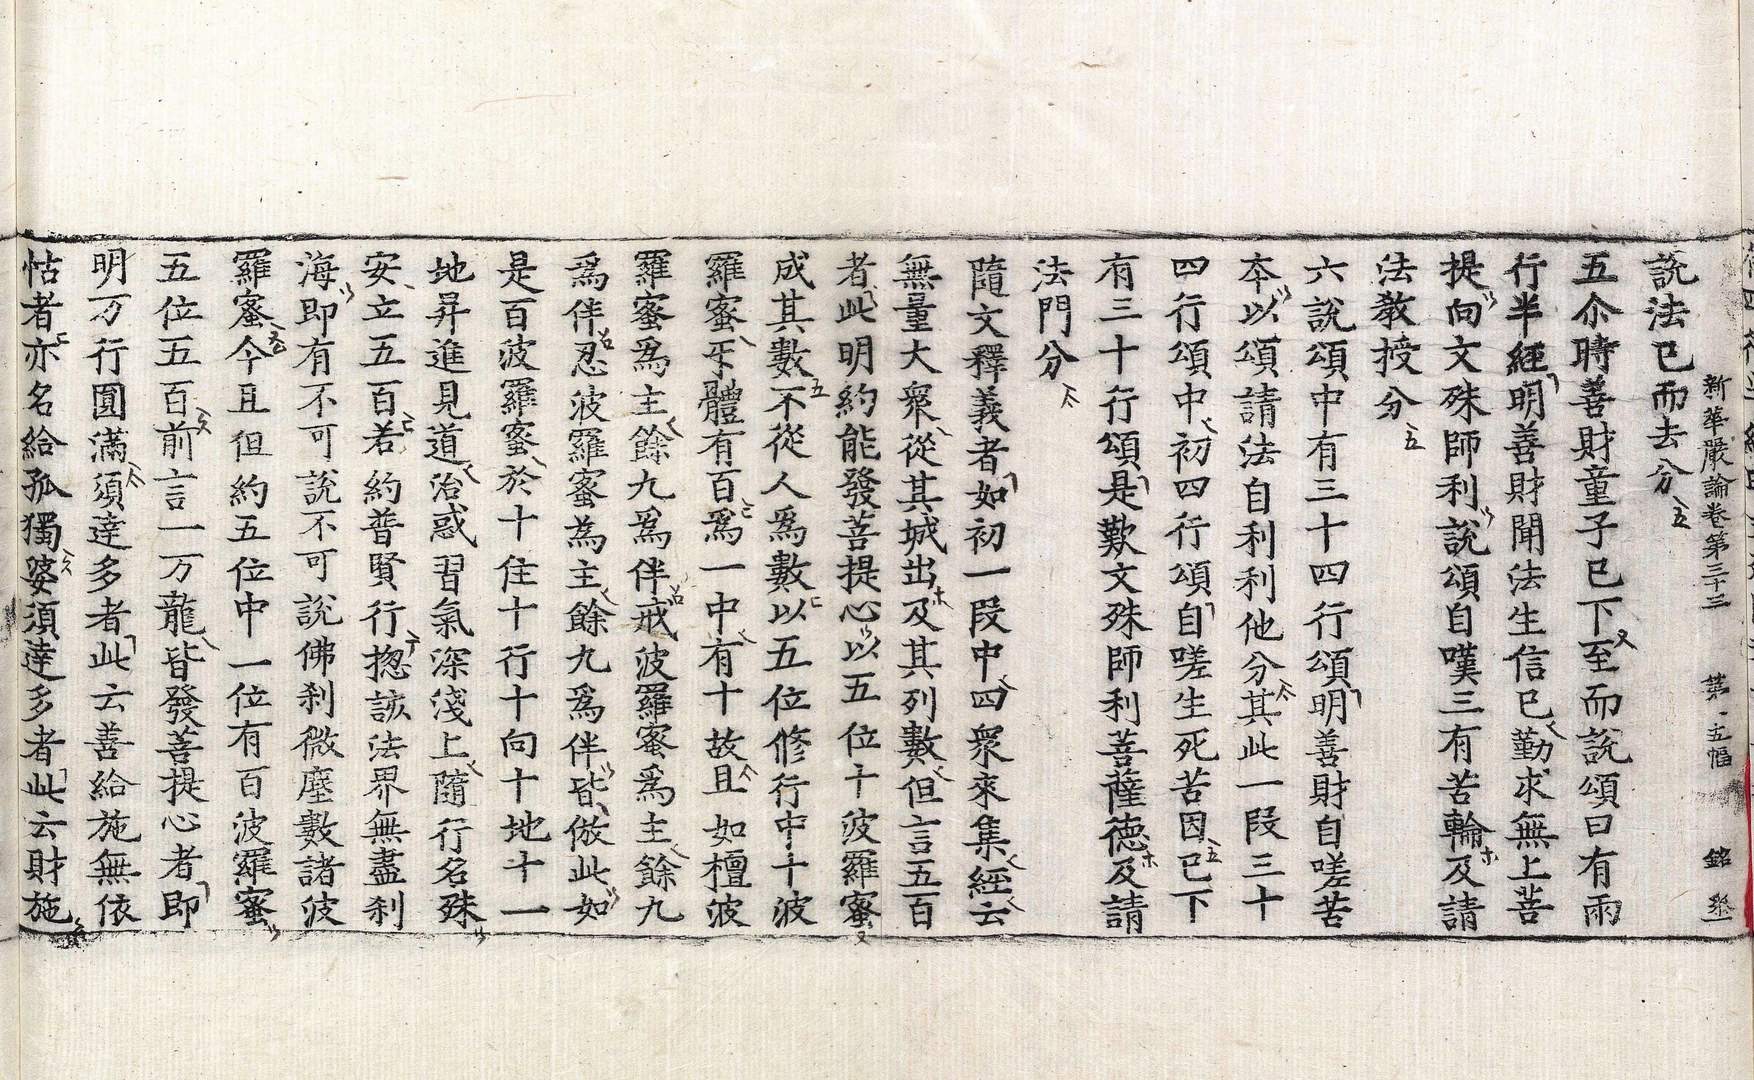 新華嚴論卷第三十三 第十五幅 銘 㸒
說法已而去分
五尒時善財童子已下至而說頌曰有兩
行半經明善財聞法生信已勤求無上菩
提向文殊師利說頌自嘆三有苦輪及請
法教授分
六說頌中有三十四行頌明善財自嗟苦
本以頌請法自利利他分其此一段三十
四行頌中初四行頌自嗟生死苦因已下
有三十行頌是歎文殊師利菩薩德及請
法門分
隨文釋義者如初一段中四眾來集經云
無量大眾從其城出及其列數但言五百
者此明約能發菩提心以五位十波羅蜜
成其數不從人爲數以五位修行中十波
羅蜜㸦體有百爲一中有十故且如檀波
羅蜜爲主餘九爲伴戒波羅蜜爲主餘九
爲伴忍波羅蜜為主餘九爲伴皆倣此如
是百波羅蜜於十住十行十向十地十一
地昇進見道治惑習氣深淺上隨行名殊
安立五百若約普賢行揔該法界無盡刹
海即有不可說不可說佛刹微塵數諸波
羅蜜今且但約五位中一位有百波羅蜜
五位五百前言一万龍皆發菩提心者即
明万行圓滿須達多者此云善給施無依
怙者亦名給孤獨婆須達多者此云財施